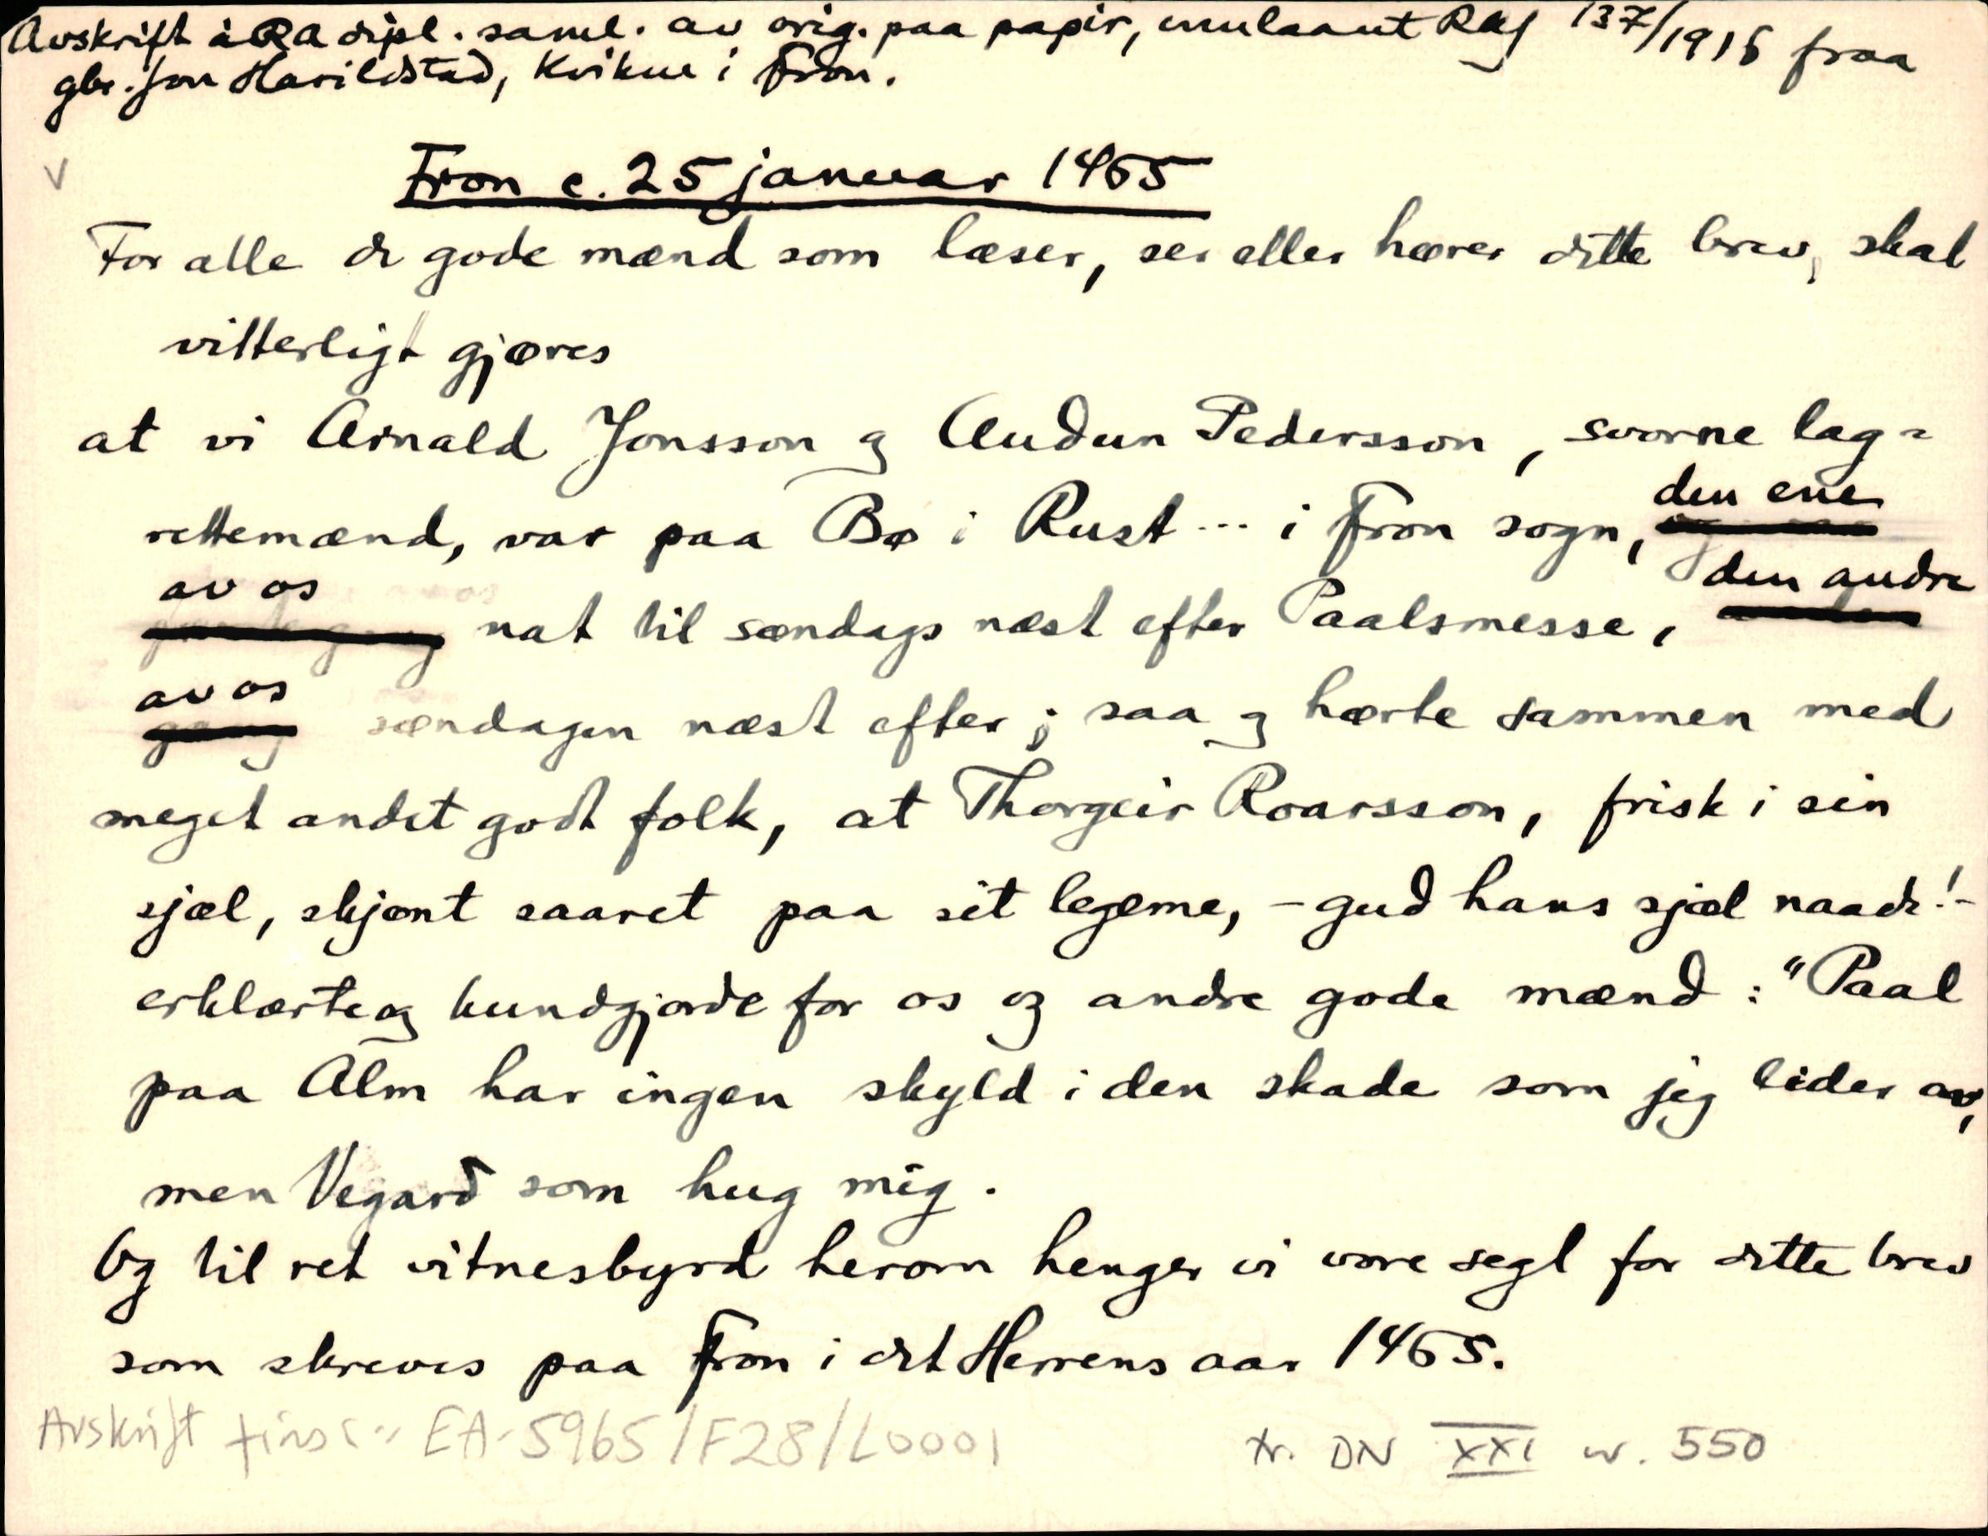 Avskrift i RA dipl. saml. av orig. paa papir, innlaant RAJ 137/1916 fraa
gbr. Jon Harildstad, Kvikne i Fron.
Fron c. 25 januar 1465
For alle de gode mænd som læser, ser eller hører dette brev, skal
vitterligt gjøres
at vi Arnald Jonsson og Audun Pedersson, svorne lag=
rettemænd, var paa Bø i Rust... i Fron sogn, den ene
av os nat til søndags næst efter Paalsmesse, den andre
av os søndagen næst efter; saa og hørte sammen med
meget andet godt folk, at Thorgeir Roarsson, frisk i sin
sjæl, skjønt saaret paa sit legeme, - gud hans sjæl naade! -
erklærte og kundgjorde for os og andre gode mænd: "Paal
paa Alm har ingen skyld i den skade som jeg lider av,
men Vegard som hug mig.
Og til ret vitnesbyrd herom henger vi vore segl for dette brev
som skreves paa Fron i det Herrens aar 1465.
Avskrift fins i EA-5965/F28/L0001
tr. DN XXI nr. 550